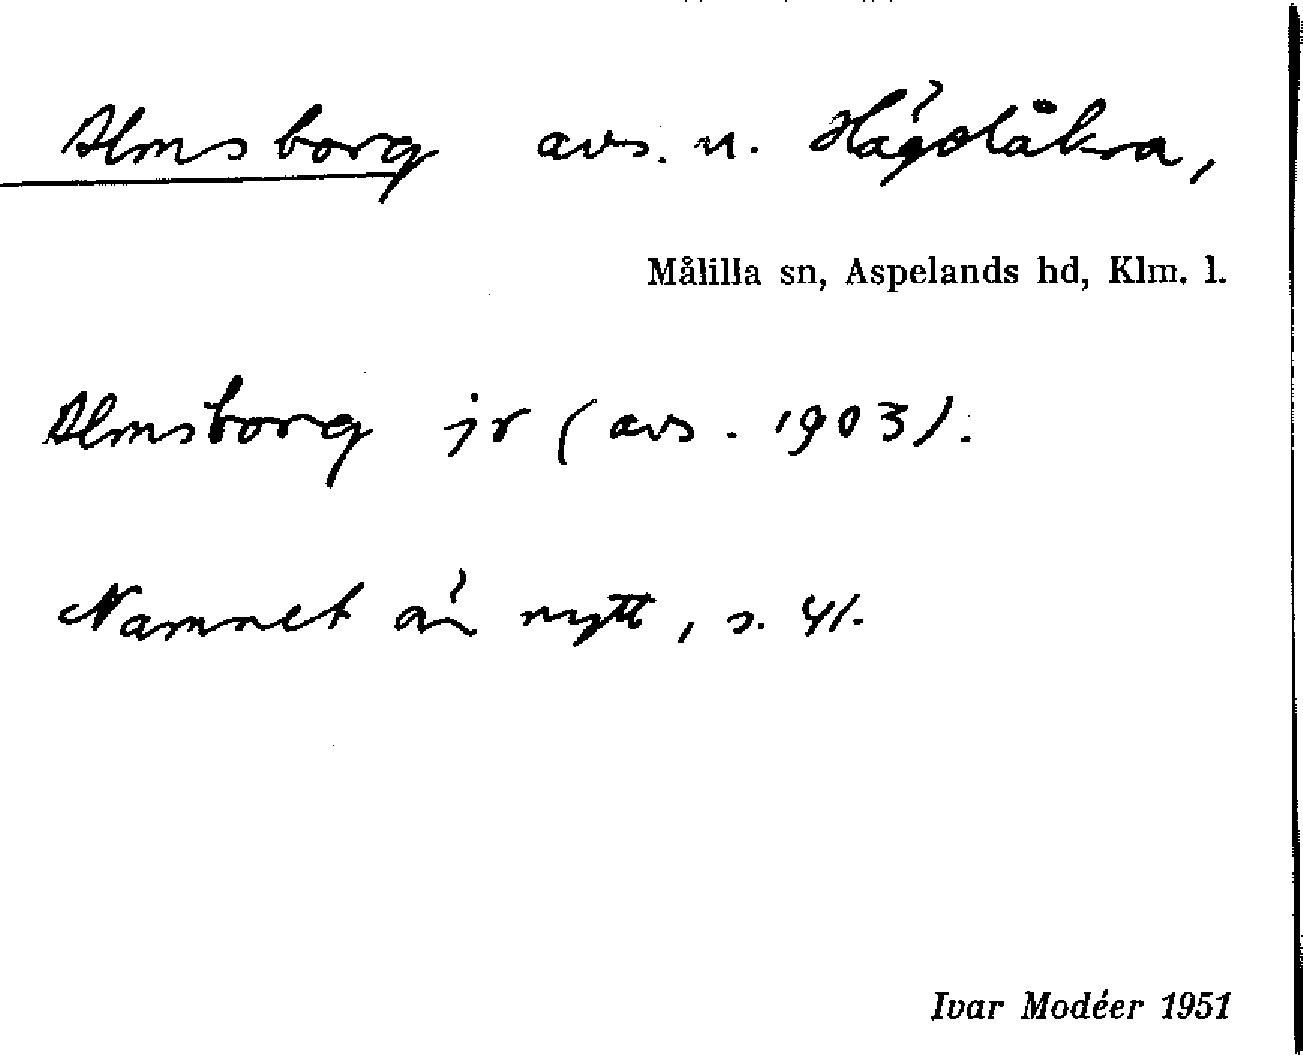 Almsborg avs. u. Hägdåkra,
Målilla sn, Aspelands hd, Klm. l.
Almsborg jr (avs. 1903).
Namnet är nytt, s. 41.
Ivar Modéer 1951